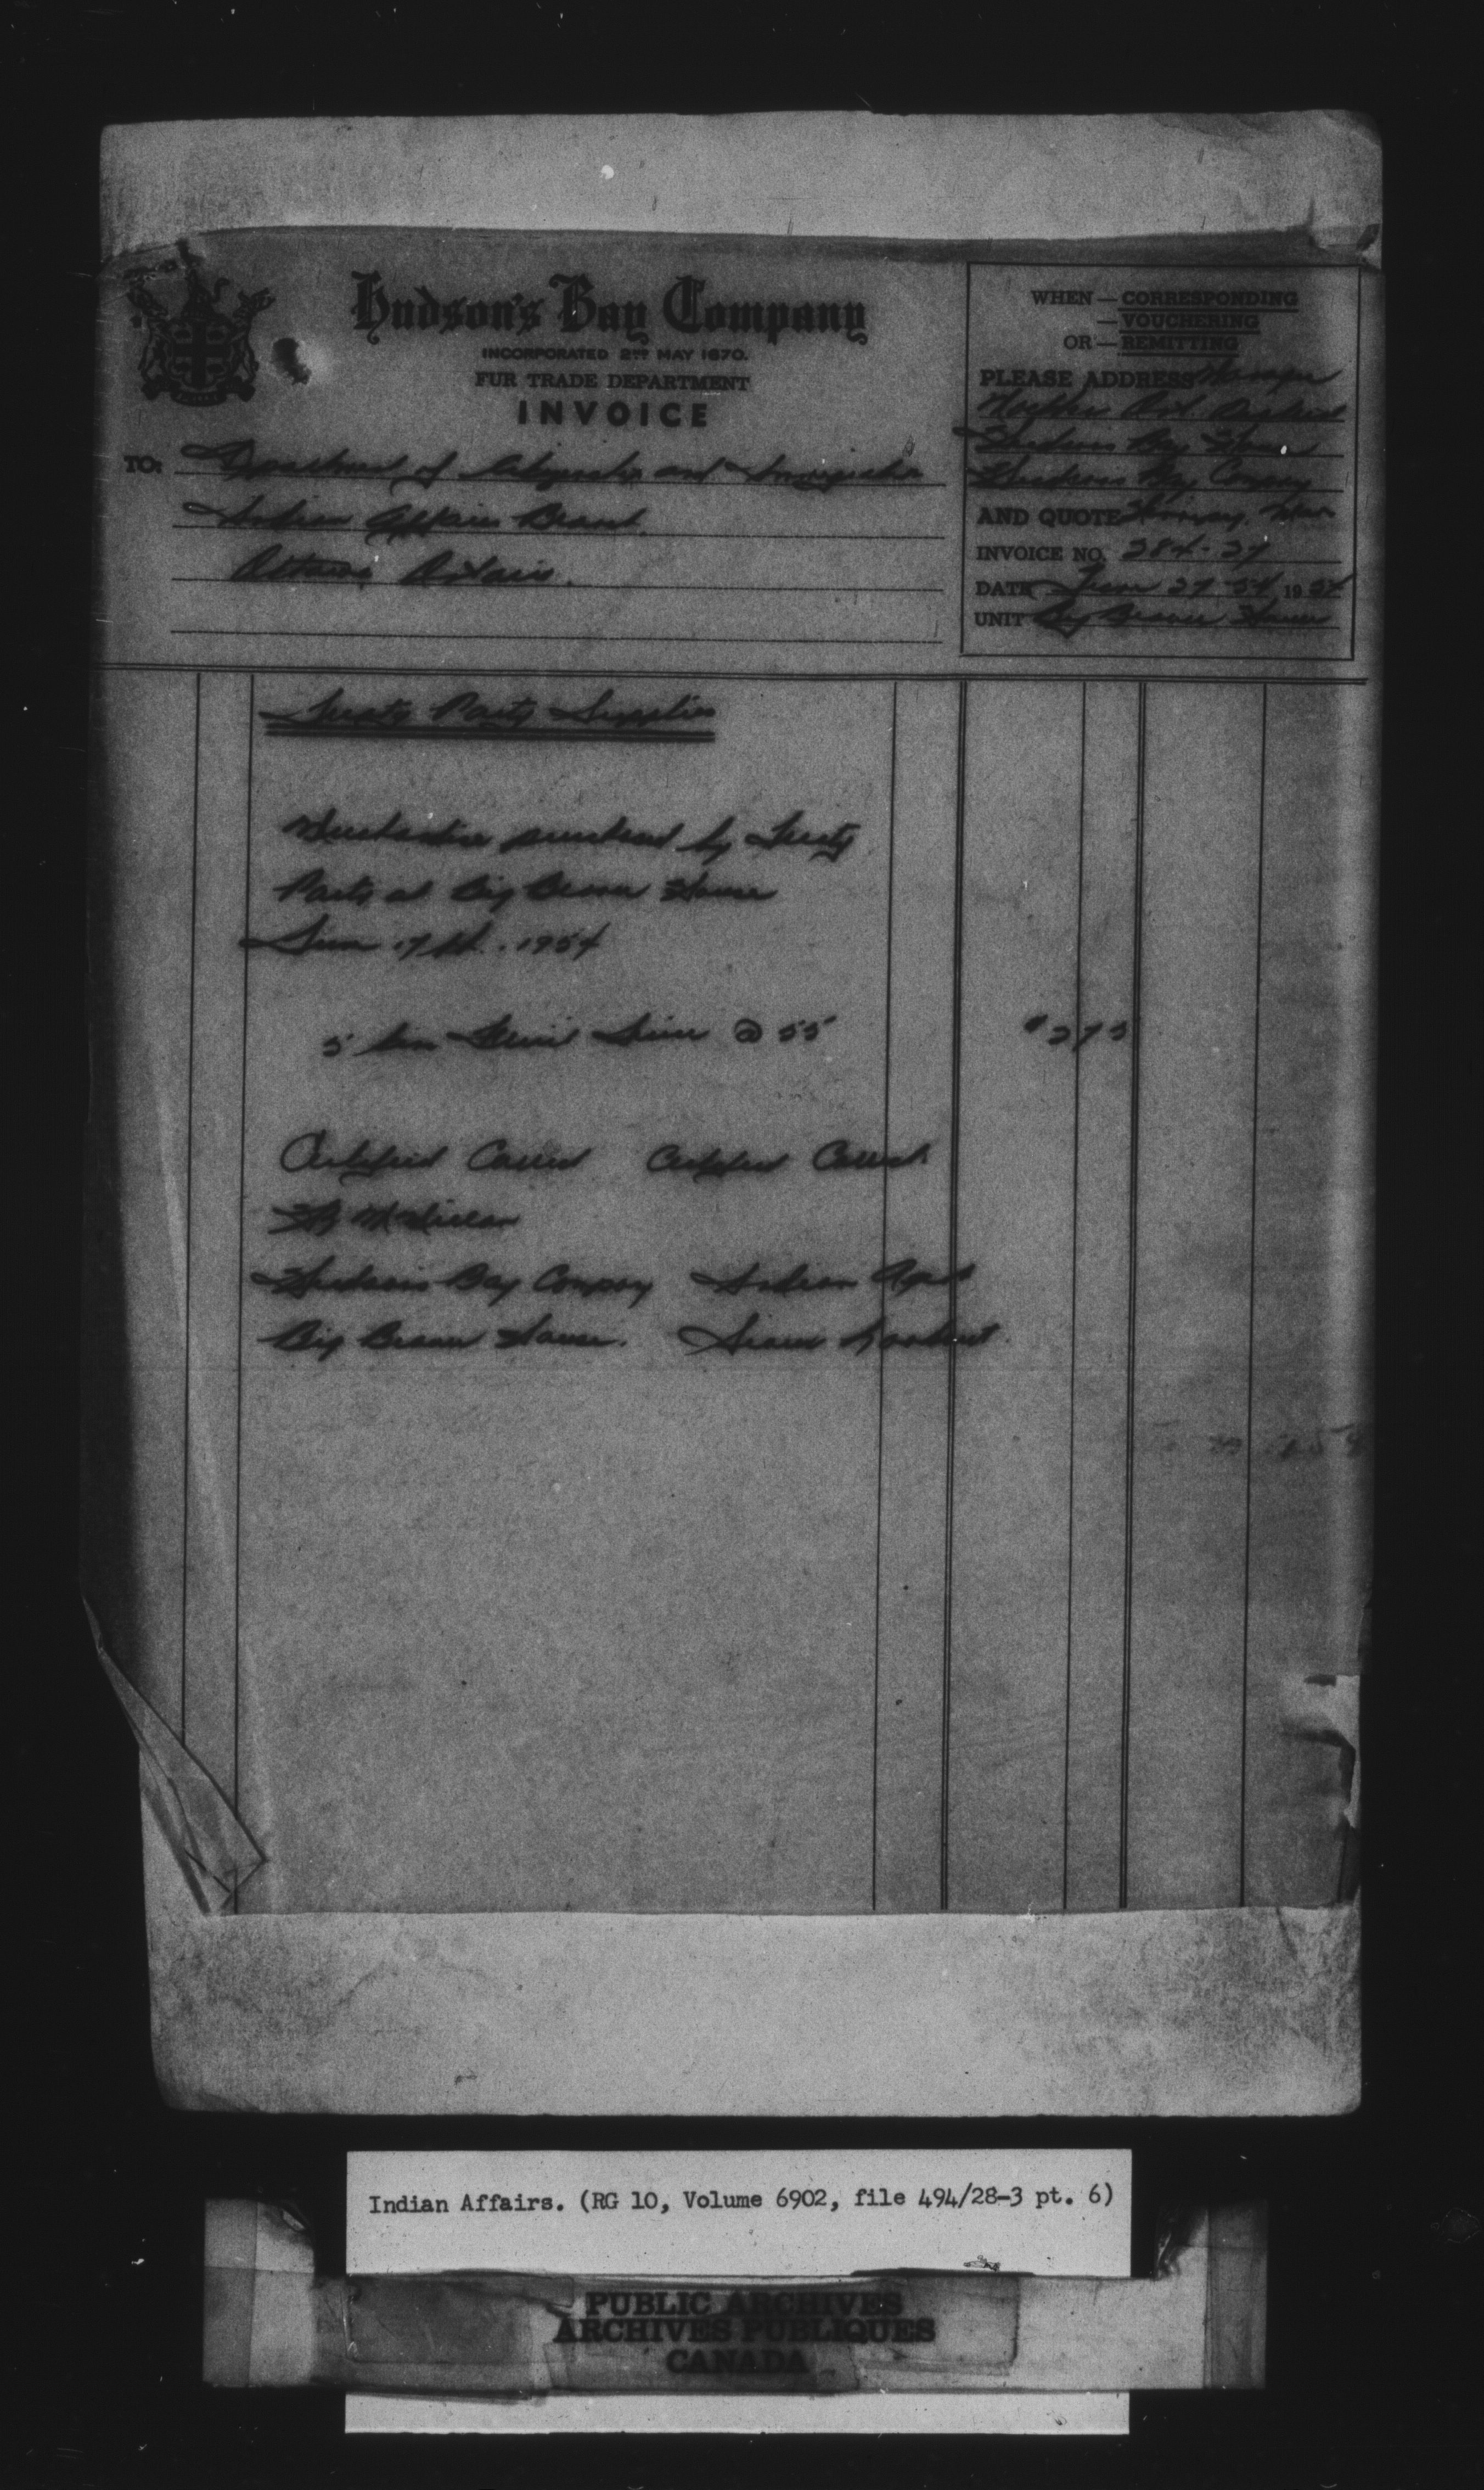 Hudson's Bay Company
INCORPORATED 2ND MAY 1670.
FUR TRADE DEPARTMENT
INVOICE
TO: Department of Citizenship and Immigration
Indian Affairs Branch
Ottawa, Ontario.
WHEN — CORRESPONDING
— VOUCHERING
OR — REMITTING
PLEASE ADDRESS Manager
Hudsons Bay House
Hudsons Bay Company
AND QUOTE Winnipeg. Man
INVOICE NO. 284-27
DATE June 27-54 1954
UNIT Big Beaver House
Treaty Party Supplies
Merchandise purchased by Treaty
Party at Big Beaver House
June 17th. 1954
5 @ 55
$2 75
Certified Correct Certified Correct
Hudsons Bay Company Indian Agent
Big Beaver House. Sioux Lookout.
Indian Affairs. (RG 10, Volume 6902, file 494/28-3 pt. 6)
PUBLIC ARCHIVES
ARCHIVES PUBLIQUES
CANADA